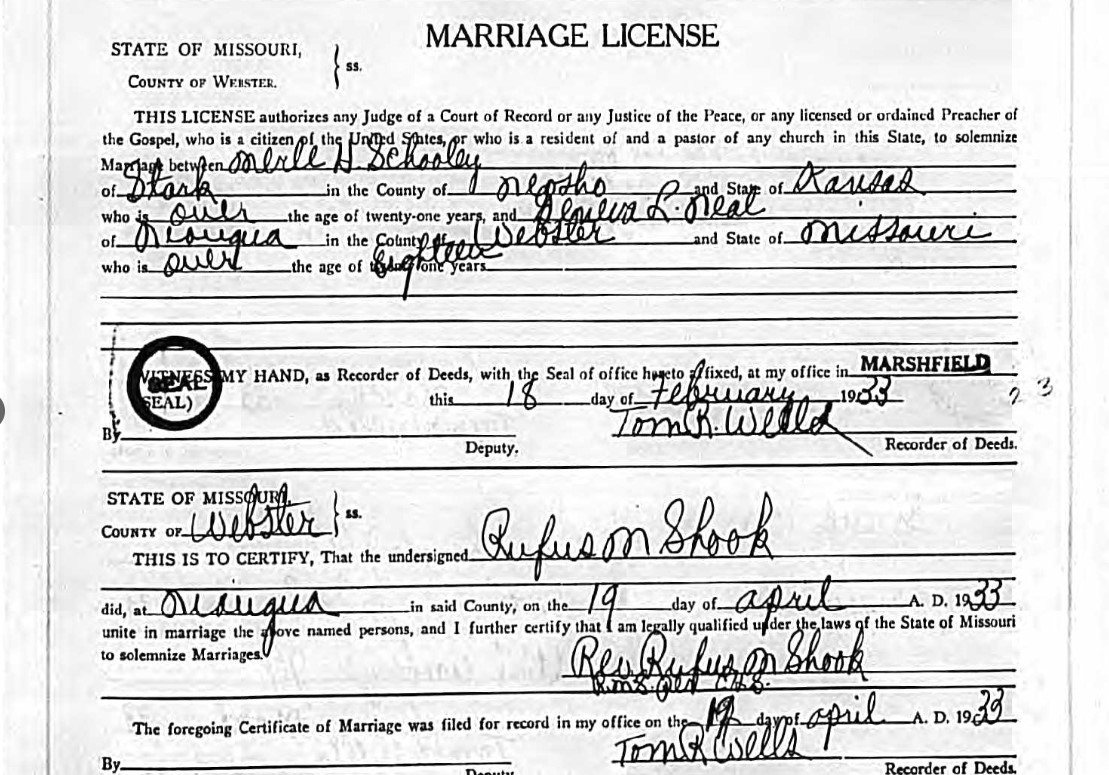 MARRIAGE LICENSE
STATE OF MISSOURI, } ss.
COUNTY OF WEBSTER.
THIS LICENSE authorizes any Judge of a Court of Record or any Justice of the Peace, or any licensed or ordained Preacher of
the Gospel, who is a citizen of the United States, or who is a resident of and a pastor of any church in this State, to solemnize
Marriage between Merle H. Schooley
of Stark in the County of Neosho and State of Kansas
who is over the age of twenty-one years, and Geneva L. Neal
of Niangua in the County of Webster and State of Missouri
who is over the age of eighteen one years
WITNESS MY HAND, as Recorder of Deeds, with the Seal of office hereto affixed, at my office in MARSHFIELD
SEAL
(SEAL) this 18 day of February 1933 23
By Tom R. Wells
Deputy. Recorder of Deeds.
STATE OF MISSOURI } ss.
COUNTY OF Webster
THIS IS TO CERTIFY, That the undersigned Rufus M Shook
did, at Niangua in said County, on the 19 day of April A. D. 1933
unite in marriage the above named persons, and I further certify that I am legally qualified under the laws of the State of Missouri
to solemnize Marriages. Rev Rufus M Shook
The foregoing Certificate of Marriage was filed for record in my office on the 19 day of April A. D. 1933
By Tom R Wells
Deputy Recorder of Deeds.